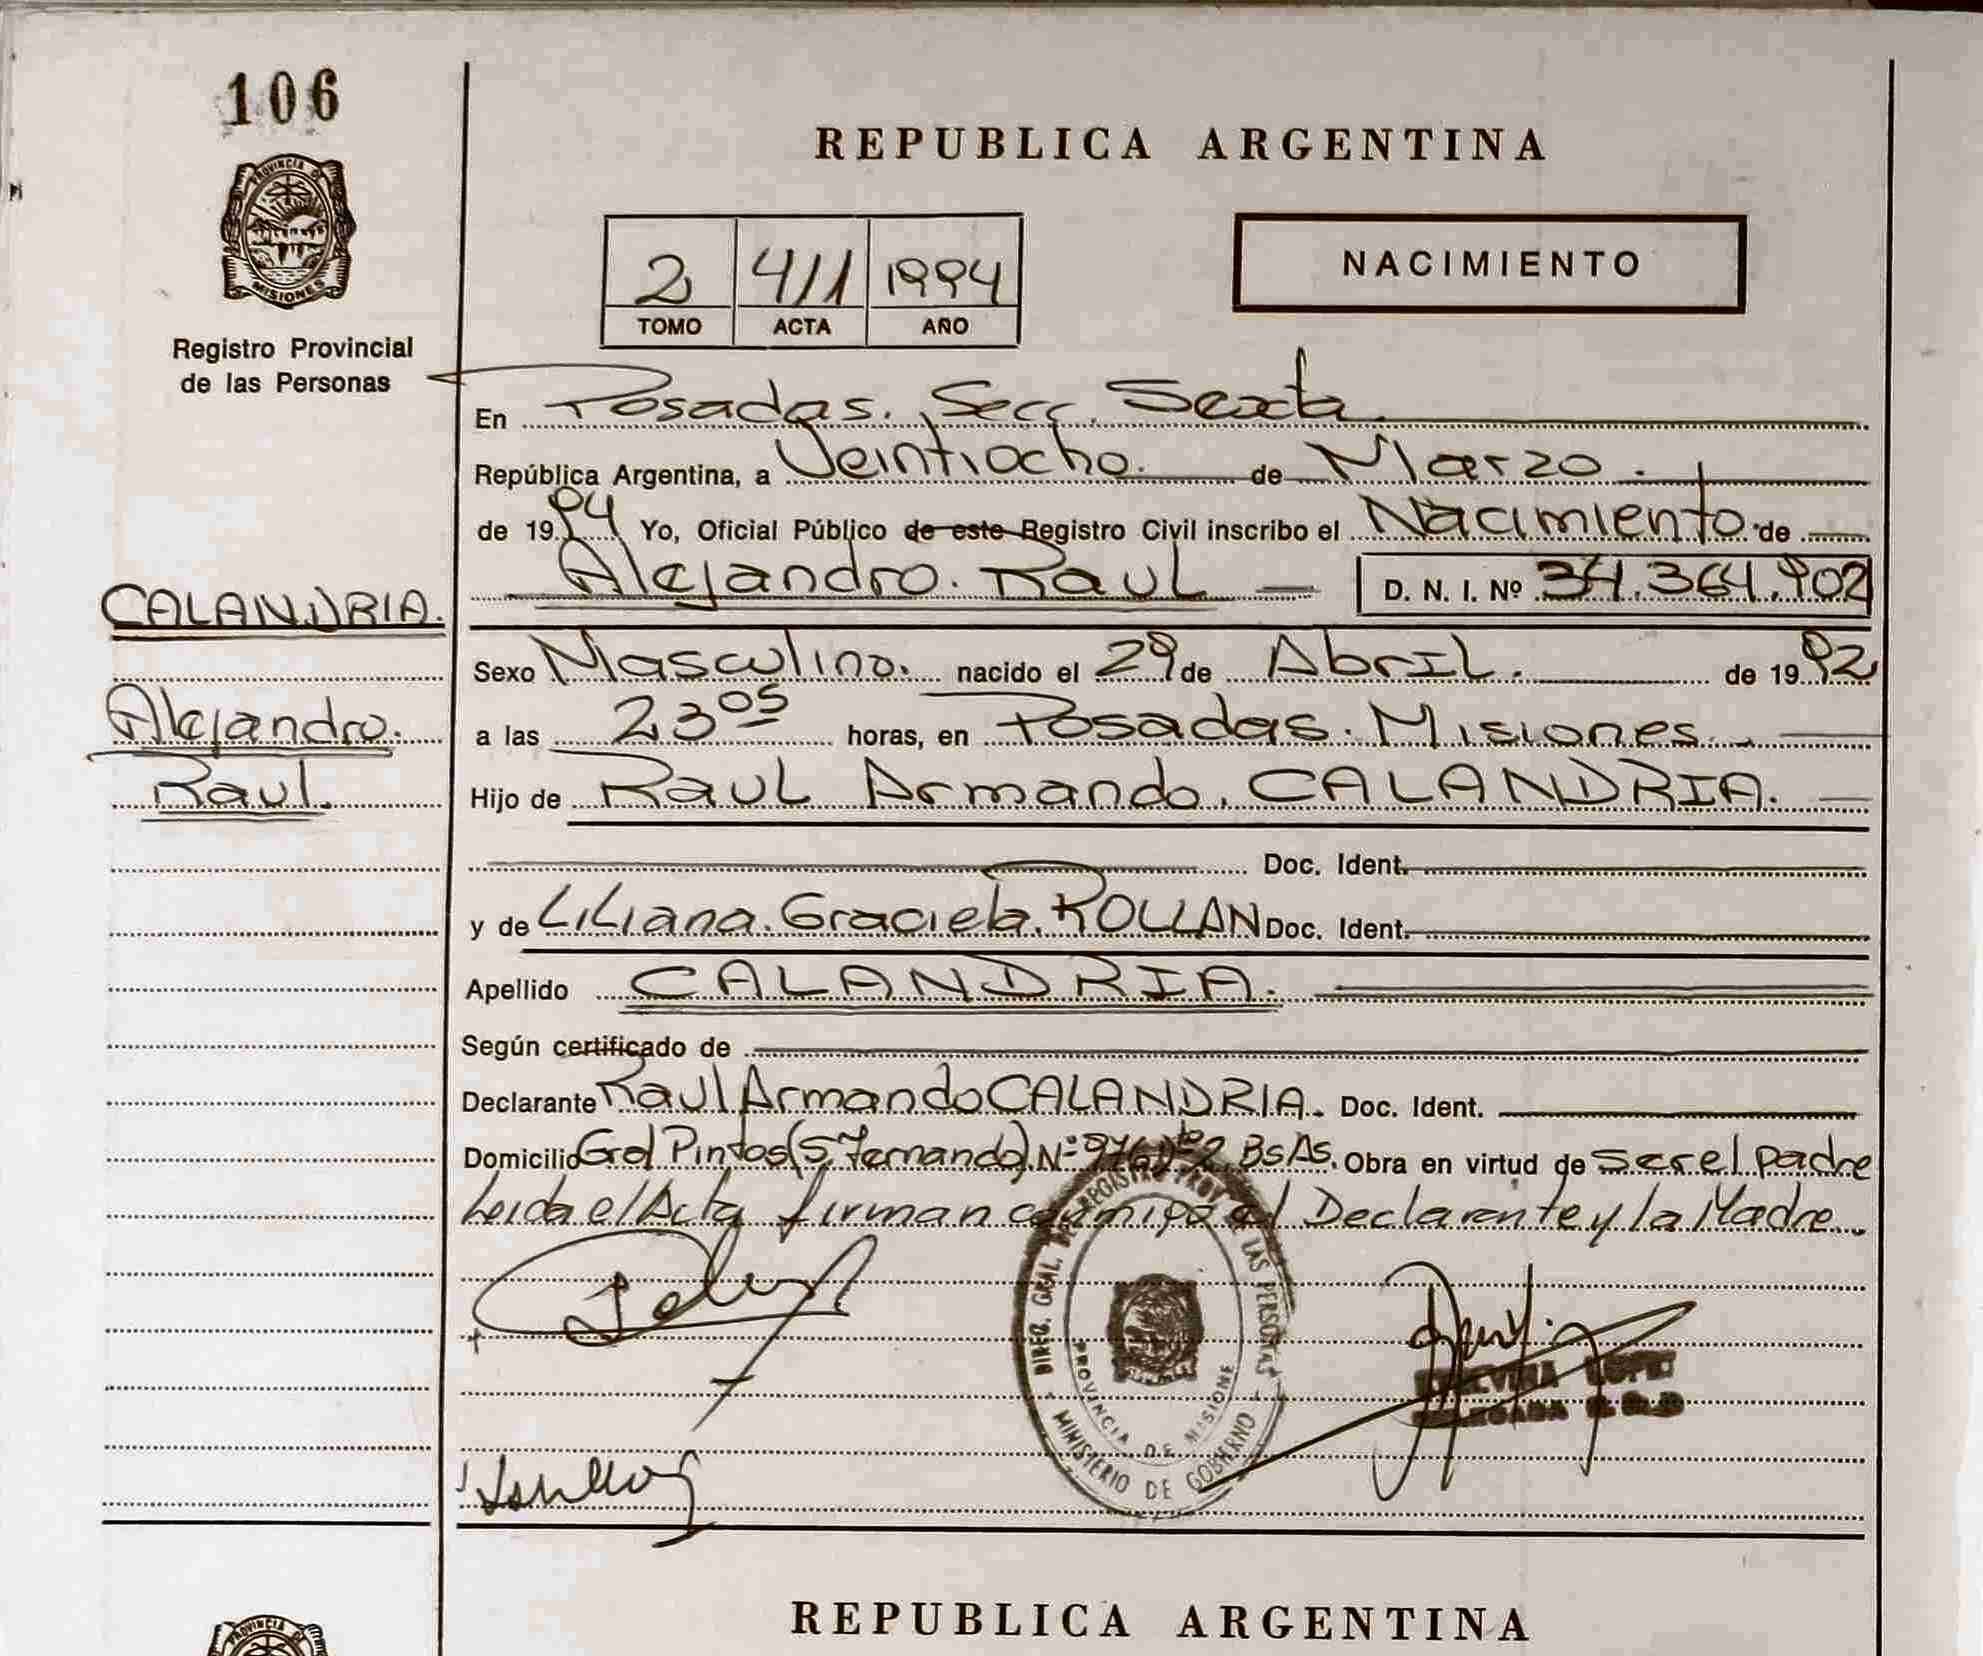 106
PROVINCIA DE
MISIONES
Registro Provincial
de las Personas
CALANDRIA.
Alejandro.
Raul.
REPUBLICA ARGENTINA
2 411 1994
TOMO ACTA AÑO
NACIMIENTO
En Posadas. Secc. Sexta.
República Argentina, a Veintiocho. de Marzo.
de 1994 Yo, Oficial Público de este Registro Civil inscribo el Nacimiento de
Alejandro. Raul D. N. I. Nº 34.364.902
Sexo Masculino. nacido el 29 de Abril. de 1992
a las 23 05 horas, en Posadas. Misiones.
Hijo de Raul Armando. CALANDRIA.
Doc. Ident.
y de Liliana. Graciela. ROLLAN Doc. Ident.
Apellido CALANDRIA.
Según certificado de
Declarante Raul Armando CALANDRIA. Doc. Ident.
Domicilio Gral Pintos (S. Fernando). Nº BsAs. Obra en virtud de ser el padre
Leida el Acta firman conmigo el Declarante y la Madre.
DIREC. GRAL. DE REGISTRO PROV. DE LAS PERSONAS
PROVINCIA DE MISIONES
MINISTERIO DE GOBIERNO
LOPEZ
REPUBLICA ARGENTINA
PROVINCIA